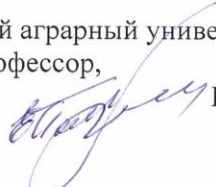 й аграрный униве
офессор,